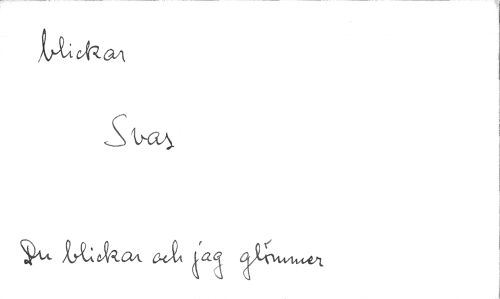 blickar
Svas
Du blickar och jag glömmer